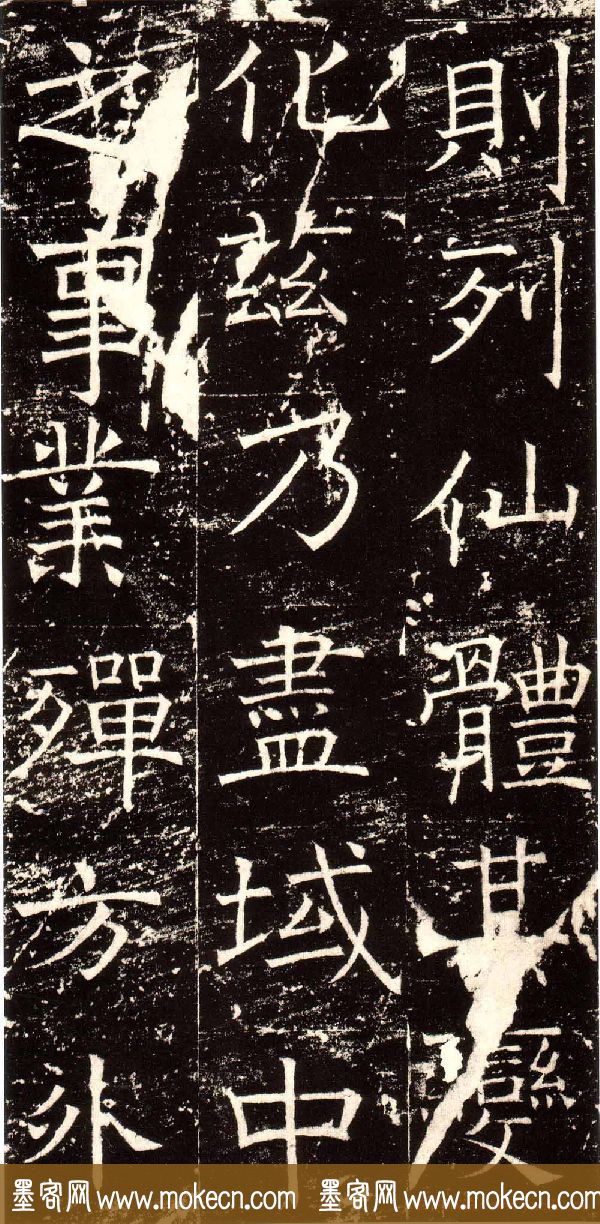 則列仙體其變
化茲乃盡域中
之事業殫方外
墨客网 www.mokecn.com 墨客网 www.mokecn.com